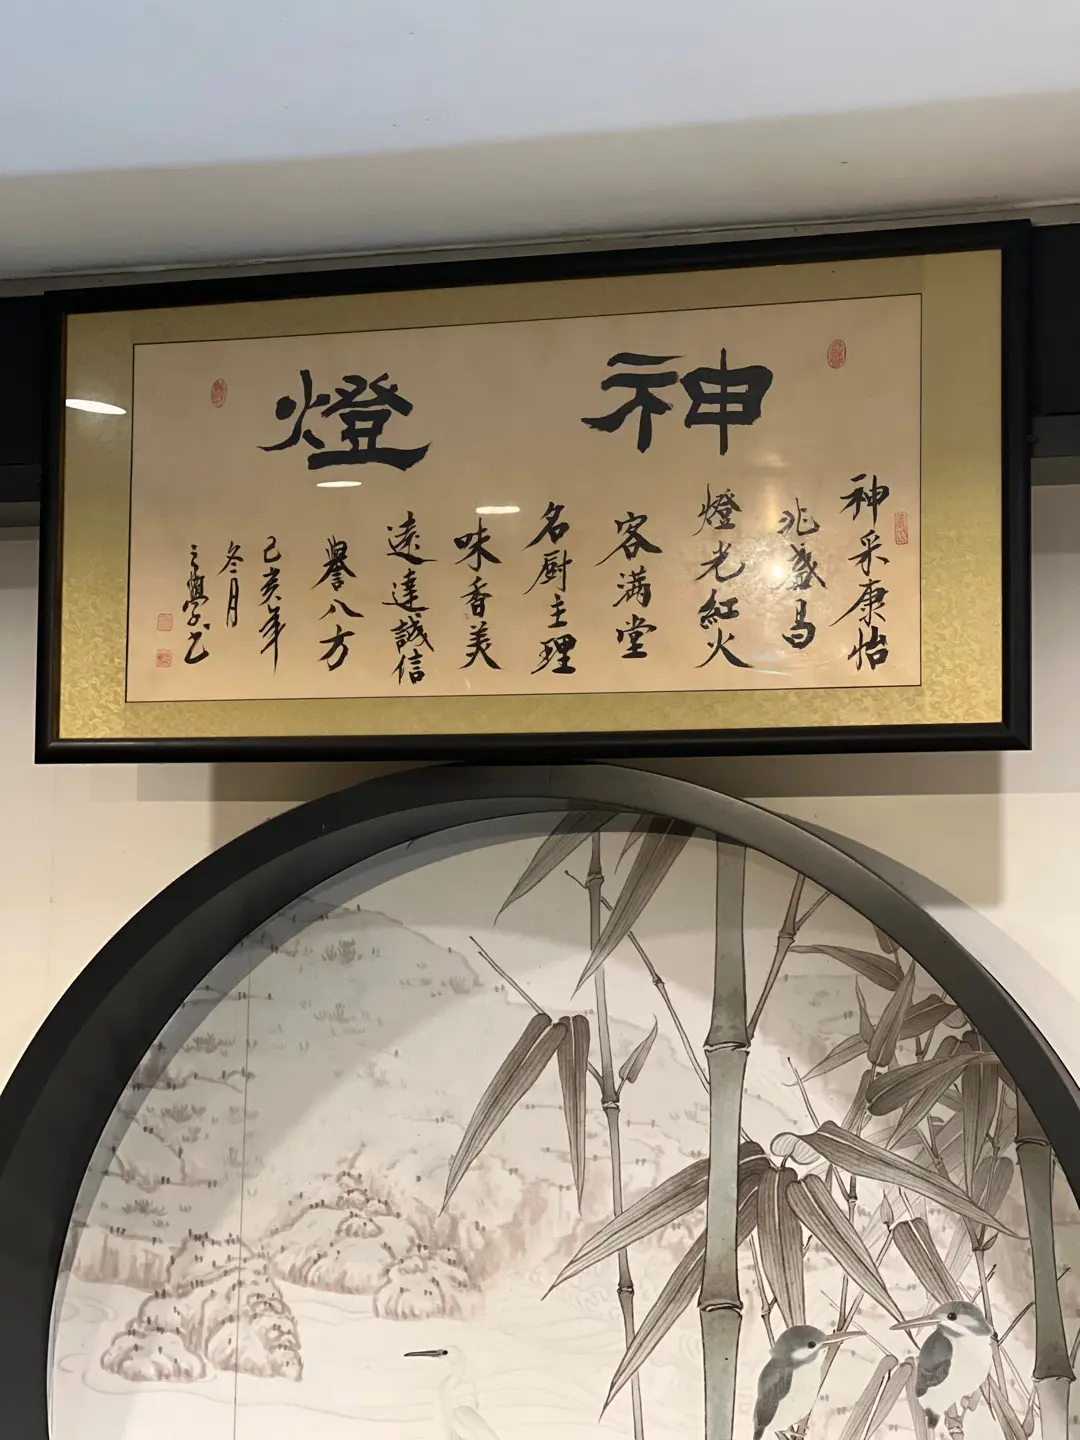 神燈
神采康怡
兆盛昌
燈光紅火
客满堂
名厨主理
味香美
遠達誠信
譽八方
己亥年
冬月